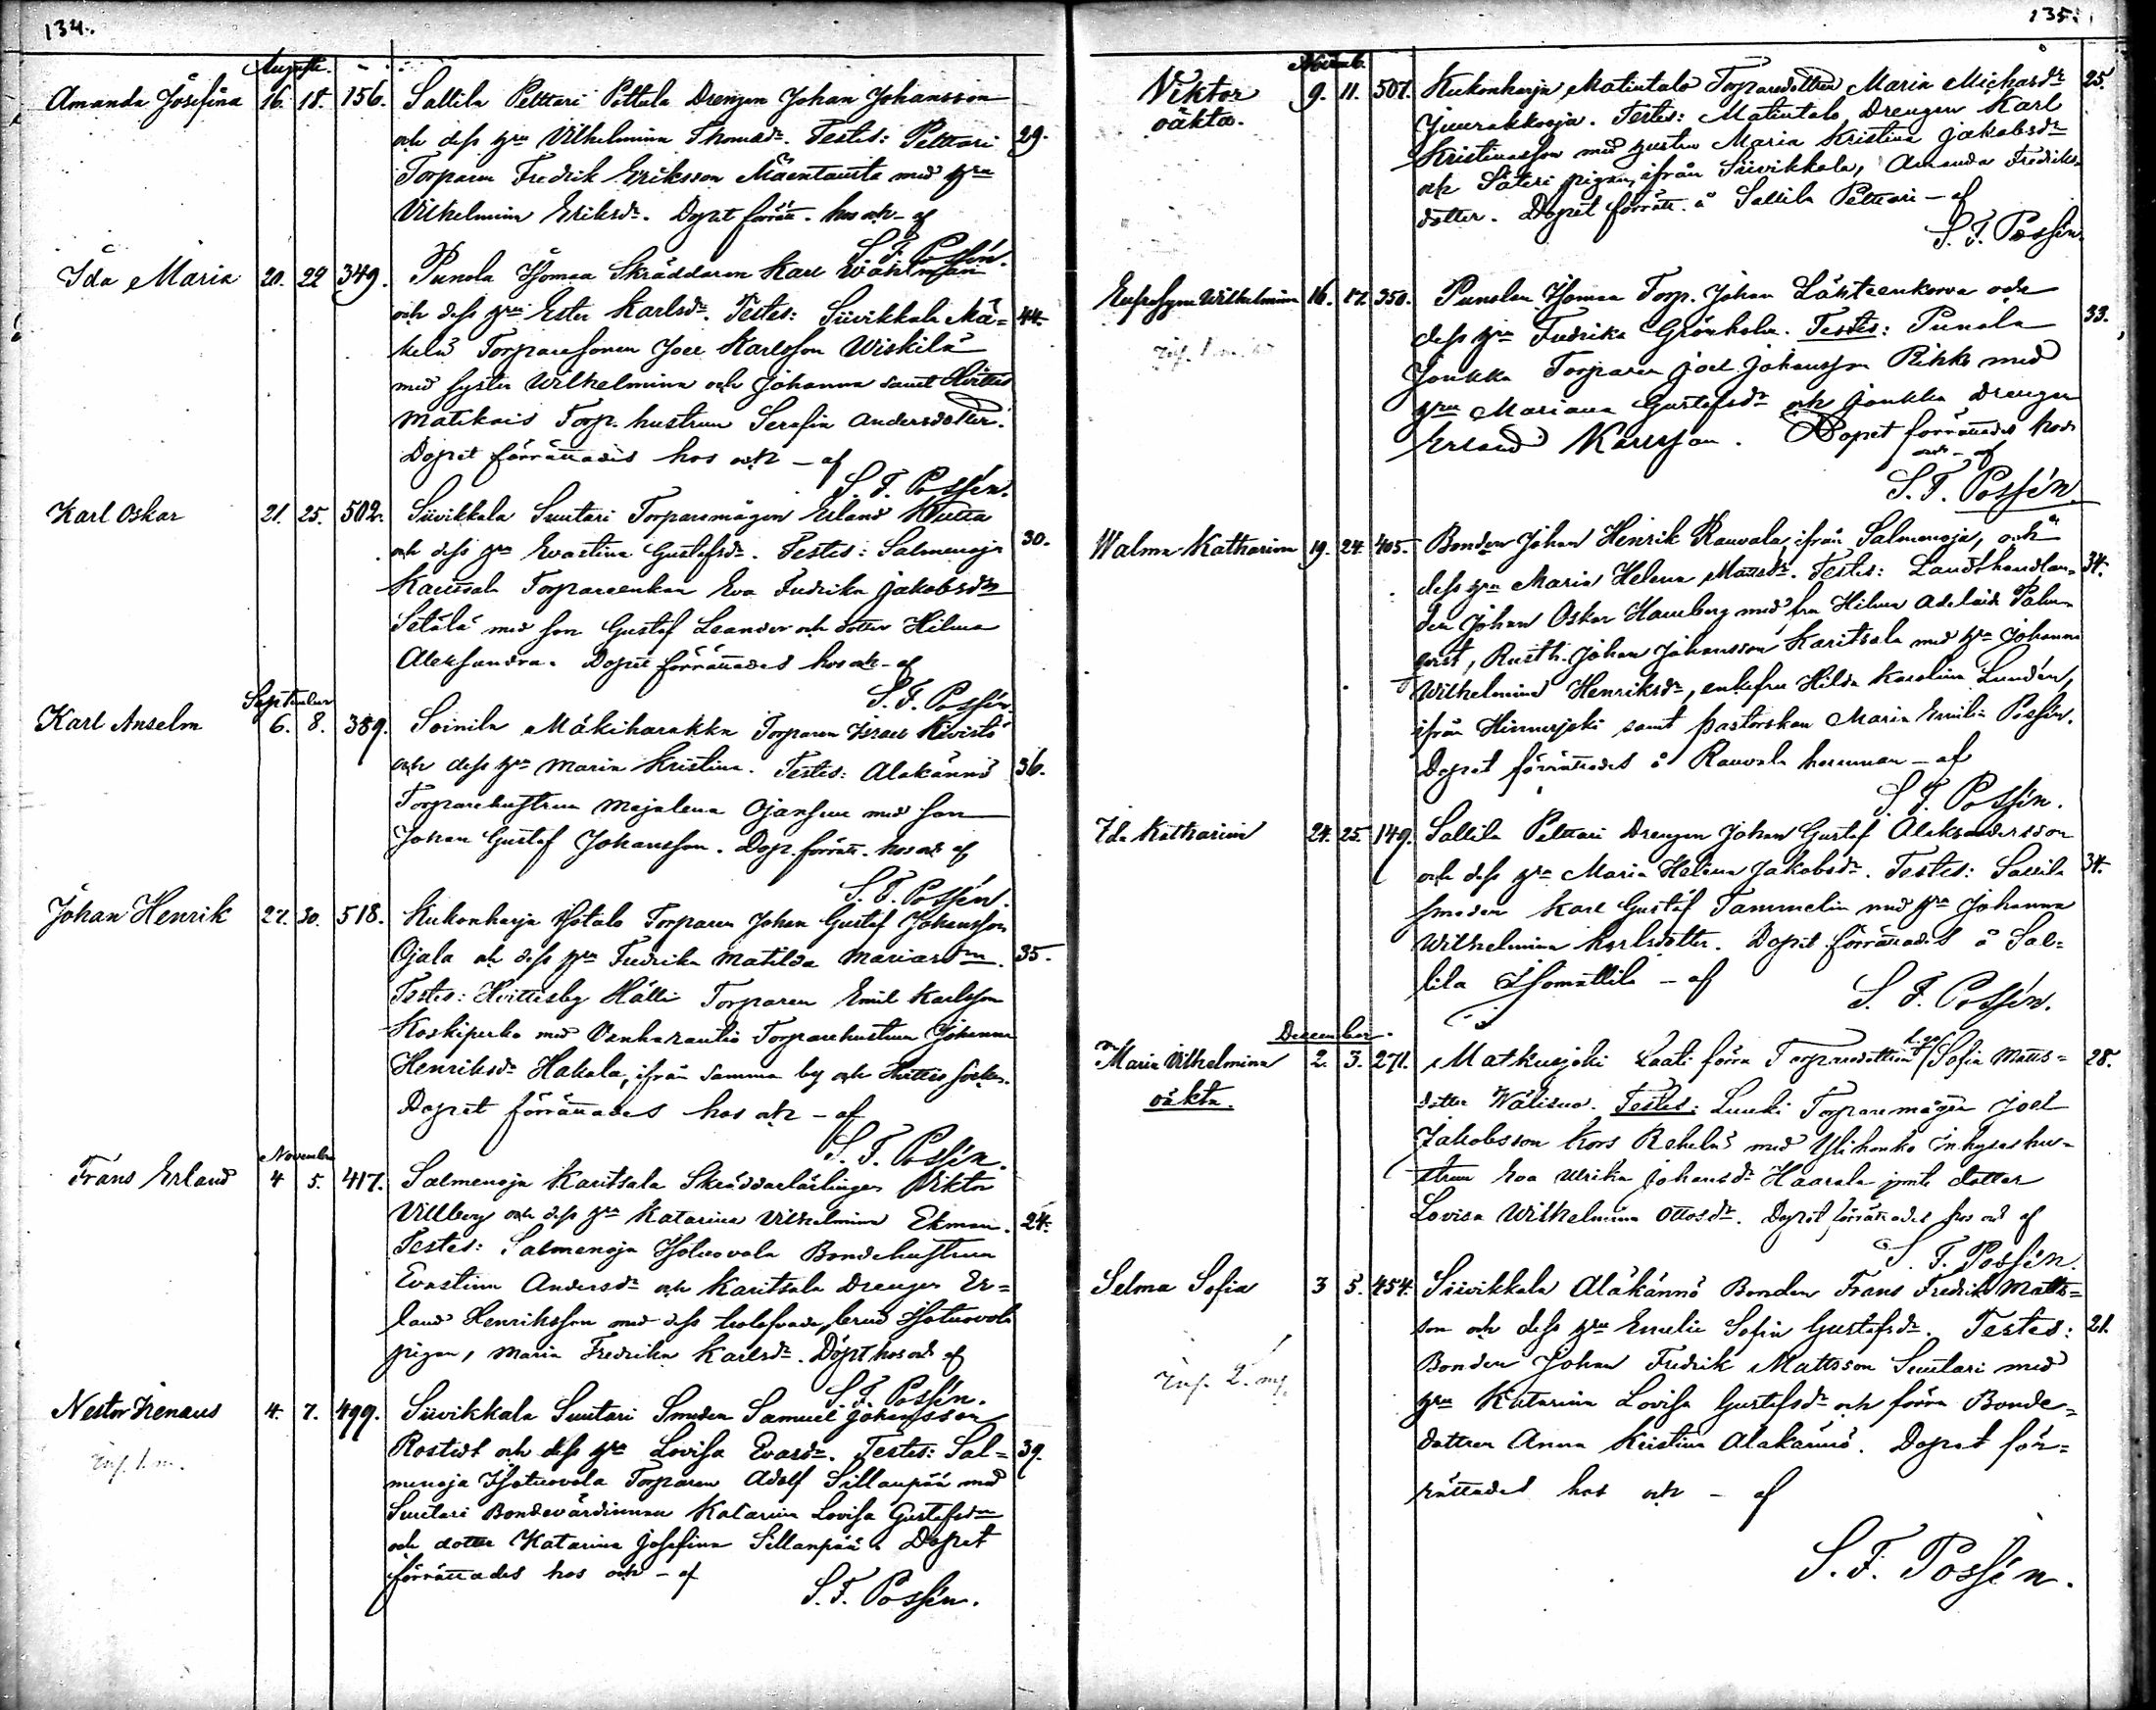 134.
Augusti.
Amanda Josefina 16. 18. 156. Sallila Pelttari Pettula Drengen Johan Johansson
och dess hru Vilhelmina Thomasdr. Testes: Pelttari 29.
Torparen Fredrik Eriksson Mäentausta med hru
Vilhelmina Eriksdr. Dopet förrätt. hos och - af
S. F. Possén.
Ida Maria 20. 22 349. Punola Isomaa Skräddaren Karl Wahlman
och dess hru Ester Karlsdr. Testes: Siivikkala Mä= 44.
kelä Torparesonen Joel Karlsson Wiskilä
med syster Wilhelmina och Johanna samt Hvittis
Matikais Torp. hustrun Serafia Andersdotter.
Dopet förrättades hos och - af
S. F. Possén.
Karl Oskar 21. 25. 502. Siivikkala Suutari Torparemågen Erland
och dess hru Evastina Gustafsdr. Testes: Salmenoja 30.
Karitsala Torpareenkan Eva Fredrika Jakobsdr
Setälä med son Gustaf Leander och dotter Hilma
Aleksandra. Dopet förrättades hos och - af
S. F. Possén.
September
Karl Anselm 6. 8. 389. Soinila Mäkiharakka Torparen Israel Kivistö
och dess hru Maria Kristina. Testes: Alakännö 36.
Torparehustrun Majalena Ojansuu med son
Johan Gustaf Johansson. Dop. förrätt. hos och af
S. F. Possén.
Johan Henrik 27. 30. 518. Kukonharja Isotalo Torparen Johan Gustaf Johansson
Ojala och dess hru Fredrika Matilda 35.
Testes: Hvittisby Hälli Torparen Emil Karlsson
Koskiperko med Torparehustrun Johanna
Henriksdr Hakala, ifrån samma by och Hvittis socken.
Dopet förrättades hos och - af
S. F. Possén.
November
Frans Erland 4 5. 417. Salmenoja Karitsala Skräddarlärlingen Viktor
Villberg och dess hru Katarina Vilhelmina Ekman. 24.
Testes: Salmenoja Isotuovola Bondehustrun
Evastina Andersdr och Karitsala Drengen Er=
land Henriksson med dess trolofvade brud Isotuovola
pigan, Maria Fredrika Karlsdr. Döpt hos och af
S. F. Possén.
Nestor Irenaus 4. 7. 499. Siivikkala Suutari Smeden Samuel Johansson
Rostedt och dess hru Lovisa Evasdr. Testes: Sal= 39.
menoja Isotuovola Torparen Adolf Sillanpää med
Suutari Bondevärdinnan Katarina Lovisa Gustafsdr
och dotter Katarina Josefina Sillanpää. Dopet
förrättades hos och - af
S. F. Possén.
135.
Novemb.
Viktor 9. 11. 507. Kukonharja Matintalo Torparedottren Maria Michaelsdr 25.
oäkta. Juurakkooja. Testes: Matintalo Drengen Karl
Kristiansson med hustru Maria Kristina Jakobsdr
och Säteri pigan, ifrån Siivikkala, Amanda Fredriks
dotter. Dopet förrätt. å Sallila Pelttari - af
S. F. Possén.
Eufrosyne Wilhelmina 16. 17. 350. Punolan Isomaa Torp. Johan Lähteenkorva och
dess hru Fredrika Grönholm. Testes: Punola 33.
Jonkka Torparen Joel Johansson Rikko med
hru Mariana Gustafsdr och Jonkka Drengen
Erland Karlsson. Dopet förrättades hos
och - af
S. F. Possén.
Walma Katharina 19. 24. 405. Bonden Johan Henrik Rauvala, ifrån Salmenoja, och
dess hru Maria Helena Mattsdr. Testes: Landthandlan= 34.
den Johan Oskar Hamberg med fru Hilma Adelaide Palm=
qvist, Rusth. Johan Johansson Karitsala med hru Johanna
Wilhelmina Henriksdr, enkefru Hilda Karolina Lundén,
ifrån Hinnerjoki samt pastorskan Maria Emilia Possén.
Dopet förrättades å Rauvala hemman - af
S. F. Possén.
Ida Katharina 24. 25. 149. Sallila Pelttari Drengen Johan Gustaf Aleksandersson
och dess hru Maria Helena Jakobsdr. Testes: Sallila 34.
smeden Karl Gustaf Tammelin med hru Johanna
Wilhelmina Karlsdotter. Dopet förrättades å Sal=
lila Isomattila - af
S. F. Possén.
December
Maria Wilhelmina 2. 3. 271. Matkusjoki Laati förra Torparedottren Sofia Matts= 28.
oäkta. dotter Wälisuo. Testes: Luuki Torparemågen Joel
Jakobsson Kors Rekelä med Ylihonko Inhyseshu=
strun Eva Ulrika Johansdr Haarala jemte dotter
Lovisa Wilhelmina Ottosdr. Dopet förrättades hos och af
S. F. Possén.
Selma Sofia 3 5. 454. Siivikkala Alakännö Bonden Frans Fredrik Matts=
son och dess hru Emelie Sofia Gustafsdr. Testes: 21.
Bonden Johan Fredrik Mattsson Suutari med
hru Katarina Lovisa Gustafsdr och förra Bonde=
dottren Anna Kristina Alakännö. Dopet för=
rättades hos och - af
S. F. Possén.